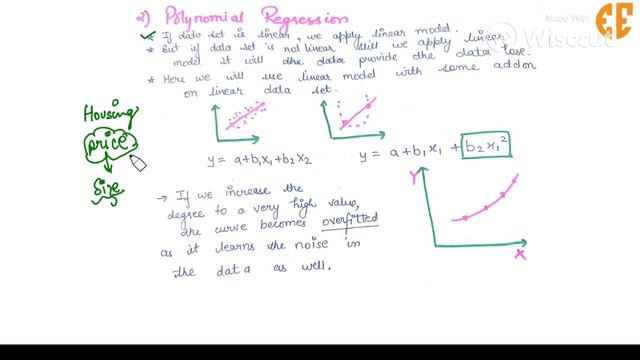 2) Polynomial Regression
Made With
Wisecut
* If data set is linear, we apply linear model.
* But if data set is not linear still we apply linear
model it will the data provide the data lose.
* Here we will use linear model with some addon
on linear data set.
Housing
price
Size
y = a+b1x1+b2x2
y = a+b1x1 + b2x1²
→ If we increase the
degree to a very high value,
the curve becomes overfitted
as it learns the noise in
the data as well.
Y
X